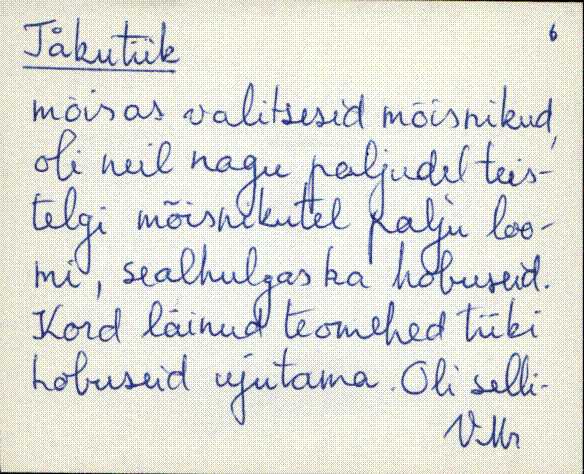 Jåkutiik
6
mõisas valitsesid mõisnikud,
oli neil nagu paljudel teis-
telgi mõisnikutel palju loo-
mi, sealhulgas ka hobuseid.
Kord läinud teomehed tiiki
hobuseid ujutama. Oli selli-
VMr